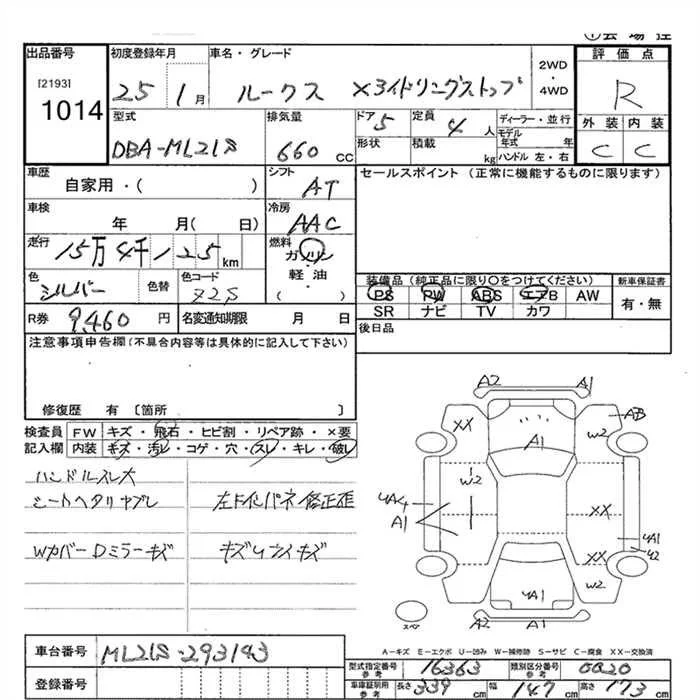 ①会場控
出品番号
[2193]
1014
初度登録年月
25 1月
車名・グレード
ルークス X3イドリングストップ
2WD
・
4WD
評価点
R
外装 内装
C C
型式
DBA-ML21S
排気量
660 CC
ドア 5
形状
定員 4人
積載 kg
ディーラー・並行
モデル
年式 年
ハンドル 左・右
車歴
自家用・( )
シフト
AT
セールスポイント (正常に機能するものに限ります)
車検
年 月( 日)
冷房
AAC
走行
15万4千125km
燃料
ガソリン
・
軽油
( )
色
シルバー
色替
色コード
Z2S
装備品 (純正品に限り○をつけてください)
PS PW ABS エアB AW
SR ナビ TV カワ
新車保証書
有・無
R券 9,460 円
名変通知期限 月 日
後日品
注意事項申告欄 (不具合内容等は具体的に記入して下さい)
修復歴 有 〔箇所 〕
検査員
記入欄
FW キズ・飛石・ヒビ割・リペア跡・×要
内装 キズ・汚レ・コゲ・穴・スレ・キレ・破レ
ハンドルスレ大
シートヘタリヤブレ
左Fインパネ修正歪
Wカバー Dミラーキズ
A2 A1
XX
A1
W2
AB
W2
YA4
A1
XX
YA1
Y2
XX
W2
YA1
A2 A1
スペア
A－キズ E－エクボ U－凹み W－補修跡 S－サビ C－腐食 XX－交換済
車台番号 ML21S-293143
登録番号
型式指定番号
参考
16363
類別区分番号
参考
0020
車庫証明用
参考
長さ 339 cm
幅 147 cm
高さ 173 cm